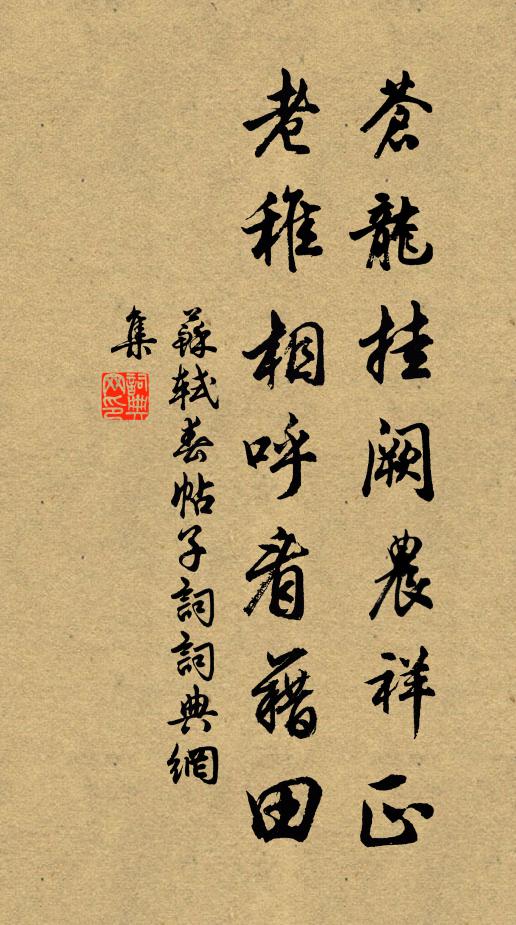 蒼龍挂闕農祥正
老稚相呼看藉田
蘇軾春帖子詞詞典網
集
詞典網印